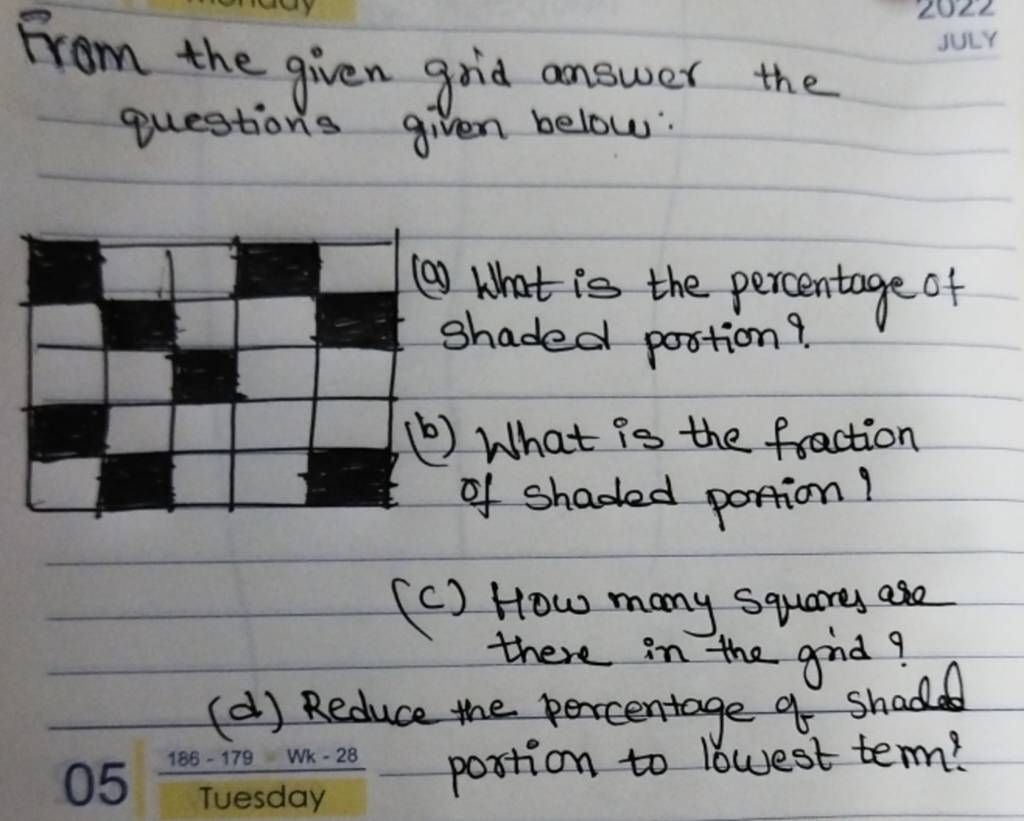 Monday
2022
JULY
From the given grid answer the
questions given below:
(a) What is the percentage of
shaded portion?
(b) What is the fraction
of shaded portion?
(c) How many squares are
there in the grid?
(d) Reduce the percentage of shaded
portion to lowest term?
05
186 - 179 Wk - 28
Tuesday